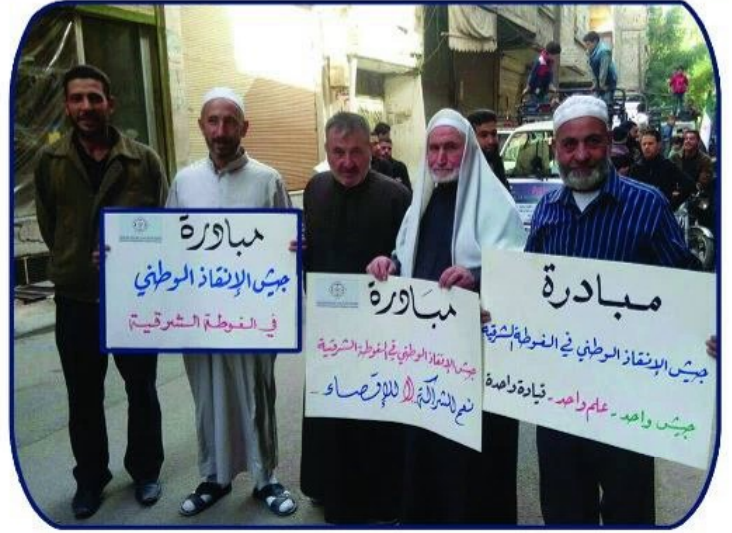 مبادرة
جيش الإنقاذ الوطني
في الغوطة الشرقية
مبادرة
جيش الإنقاذ الوطني في الغوطة الشرقية
نعم للشراكة لا للإقصاء ..
مبادرة
جيش الإنقاذ الوطني في الغوطة الشرقية
جيش واحد - علم واحد - قيادة واحدة